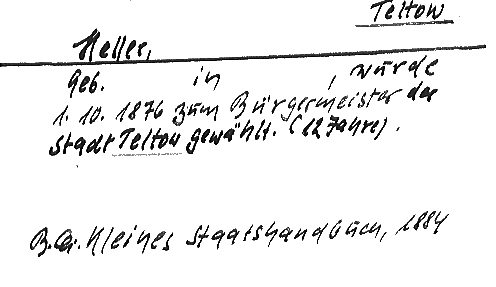 Teltow
Heller,
Geb. in , wurde
1. 10. 1876 zum Bürgermeister der
Stadt Teltow gewählt. (12 Jahre).
Kleines Staatshandbuch, 1884